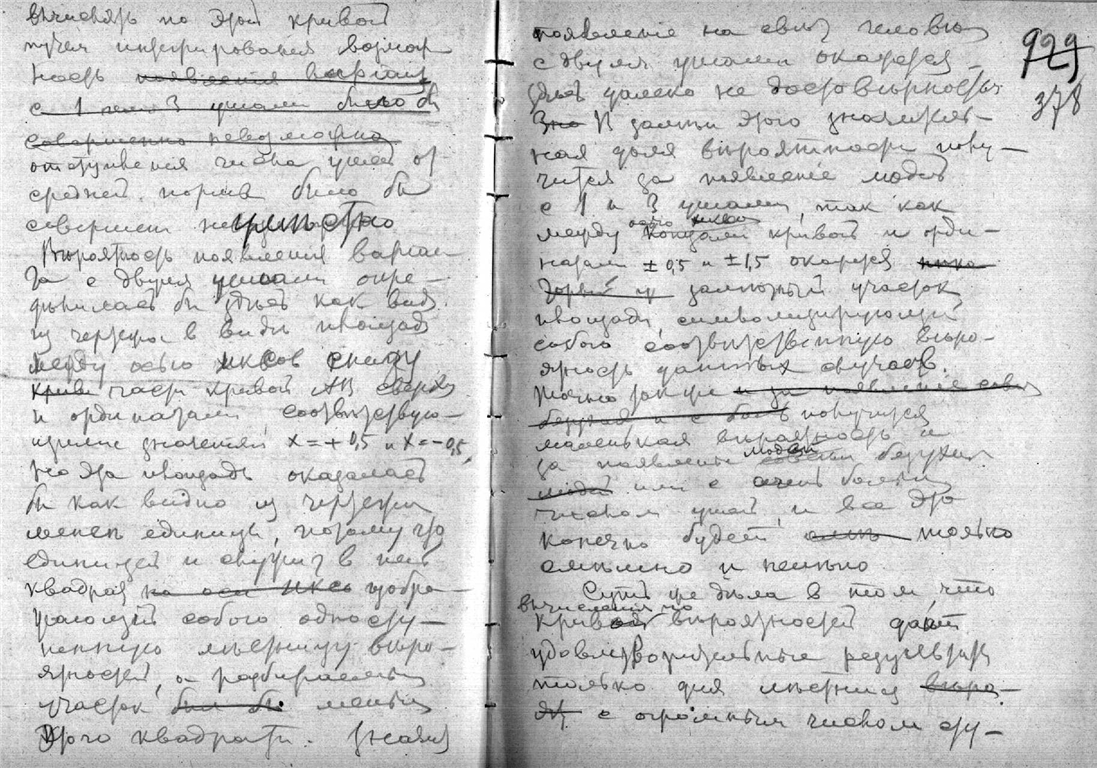 вычислять по этой кривой
путем интегрирования
ность появления
с 1 или 3 ушами было бы
совершенно невозможно
отступления числа ушей от
средней нормы было бы
совершен
Вѣроятность появления вариан
та с двумя ушами опре-
дѣлилась бы здѣсь как видн
из чертежа в виде площади
между осью иксов снизу
криви части кривой АВ сверху
и ординатами, соотвѣтствую-
щими значениям x=+0,5 и x=-0,5,
но эта площадь оказалась
бы как видно из чертежа
менее единицы, потому что
единицей и служит в ней
квадрат на оси икс изобра-
жающий собою односту-
пенную лѣстницу вѣро-
ятностей, а разбираемый
участок был бы меньш
этого квадрата.
появление на свѣт человѣка
с двумя ушами окажется
здѣсь далеко не достовѣрностью
Зна И замѣтим этого значитель-
ная доля вѣроятности полу-
чится за появление людей
с 1 и 3 ушами, так как
осью иксов
между концами кривой и орди-
натами ±0,5 и ±1,5 окажется
замѣтный участок
площади, символизирующий
собою соотвѣтственную вѣро-
ятность данных случаев.
Точно так же и за появление
безухих и с получится
маленькая вѣроятность и
людей
за появление совсѣм безухих
людей или с очень большим
числом ушей, и все это
конечно будет лишь только
смѣшно и нелепо
Суть же дѣла в том, что
вычисления по
кривой вѣроятностей дают
удовлетворительные результаты
только для лѣстниц вѣро-
ят с огромным числом сту-
929
378